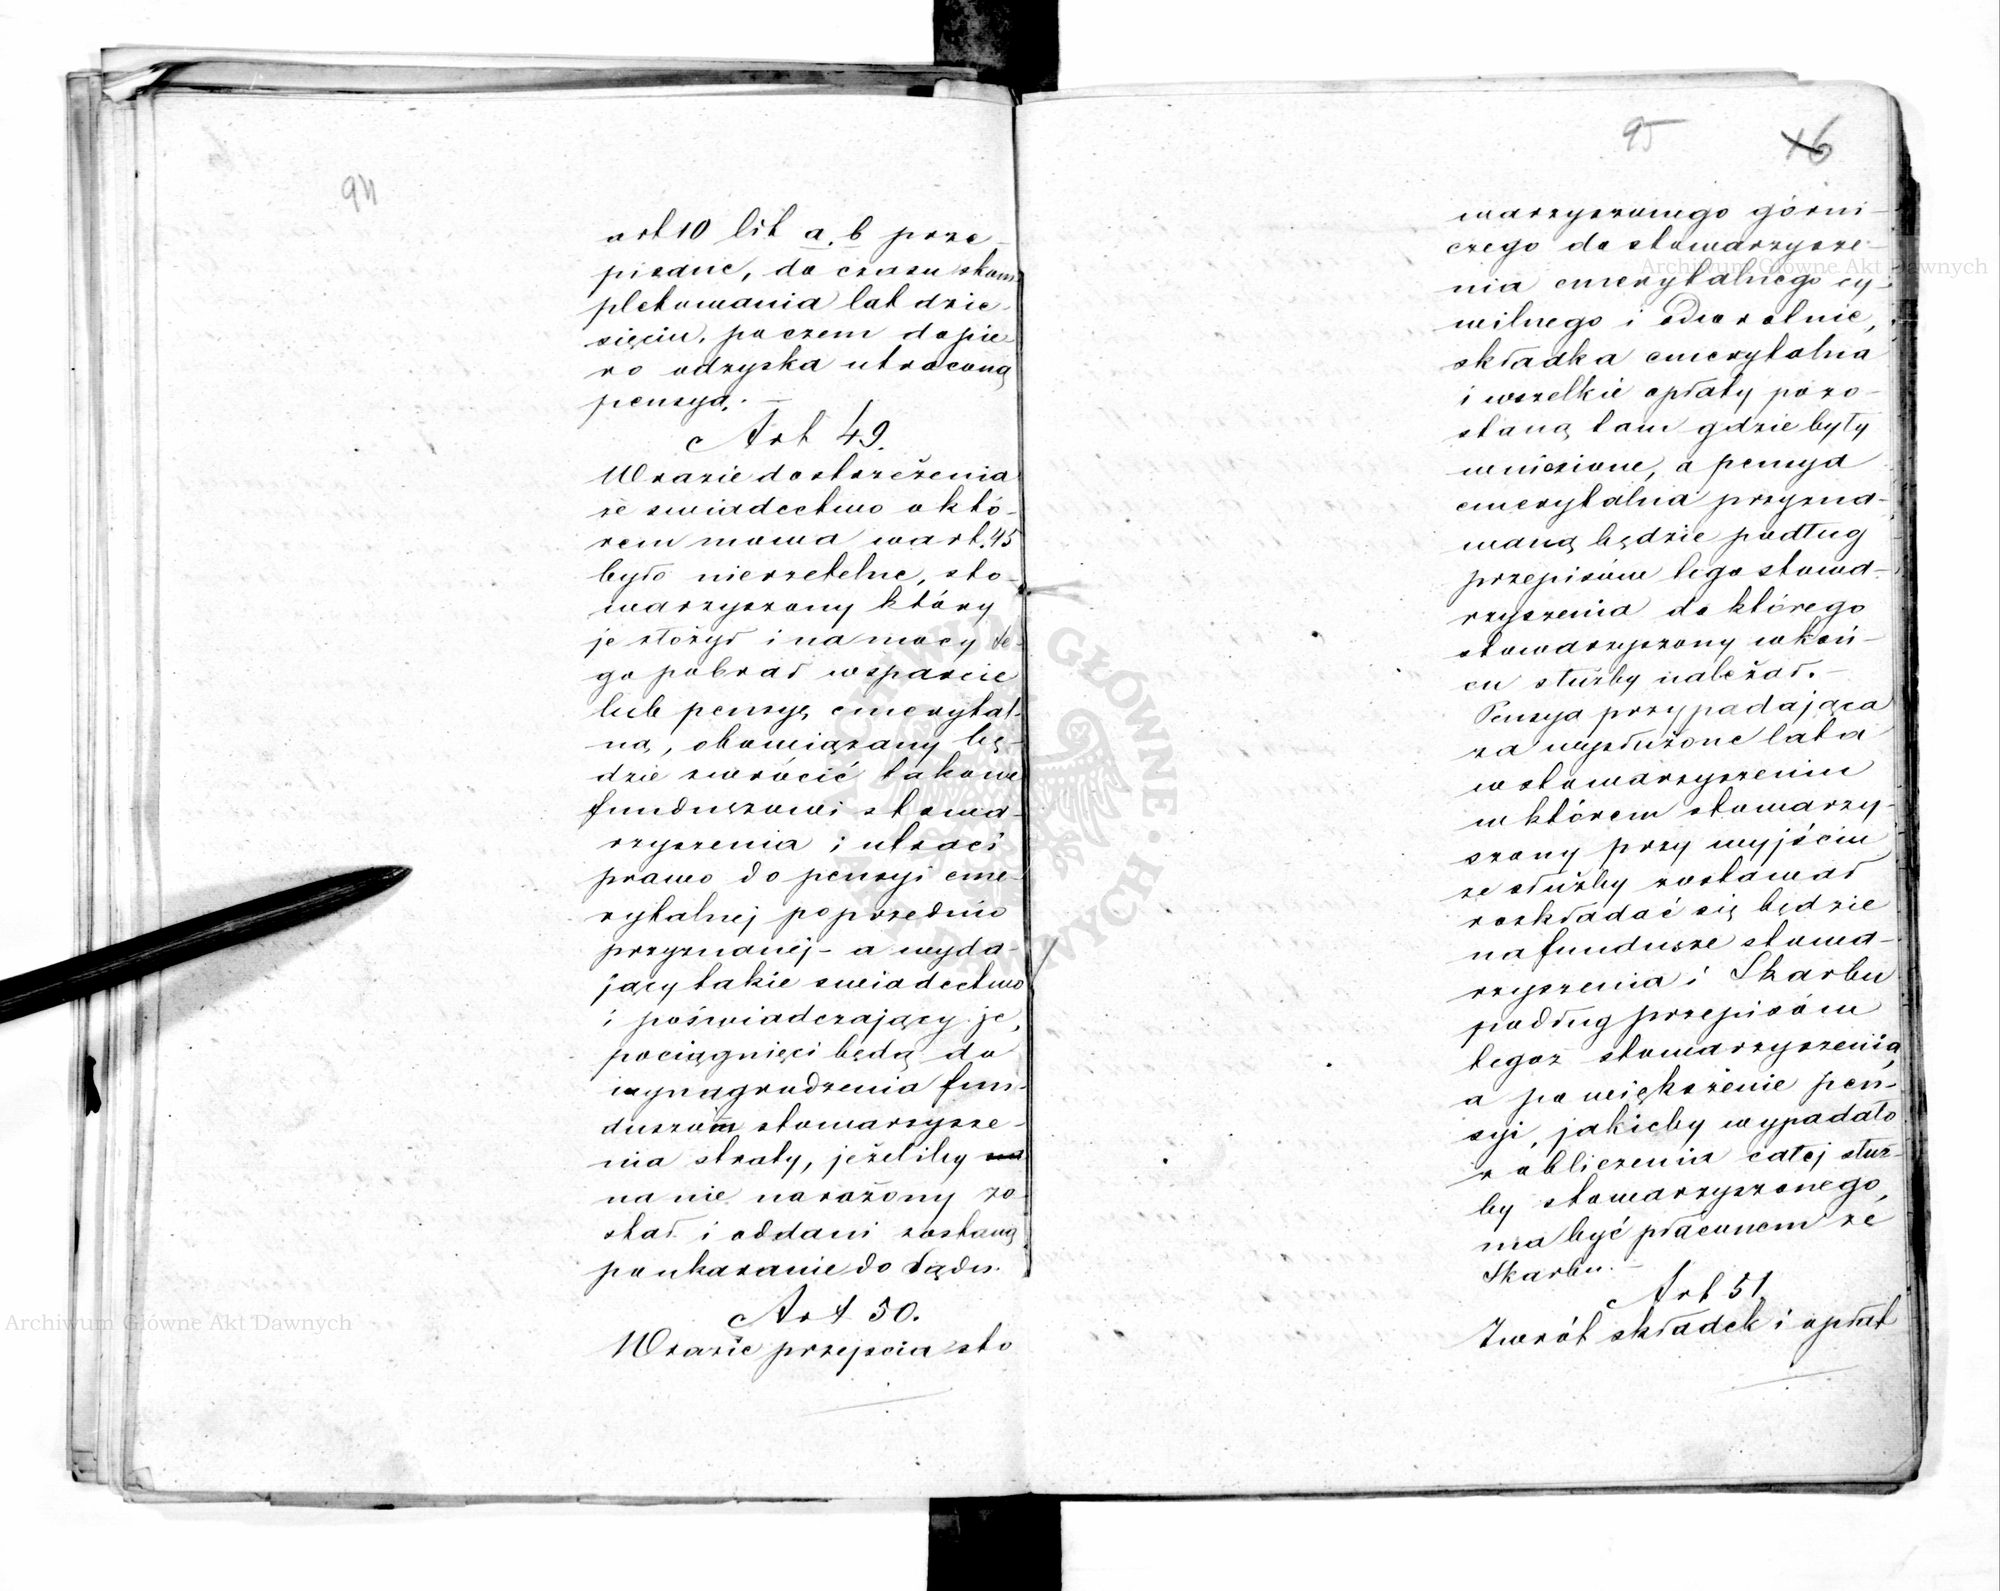 94
art 10 lit a, b prze-
pisane, do czasu skom-
pletowania lat dzie-
sięciu, poczem dopie-
ro odzyska utraconą
pensyą. —
Art 49.
W razie dostrzeżenia
że swiadectwo o któ-
rem mowa w art. 45
było nierzetelne, sto-
warzyszony który
je złożył i na mocy te-
go pobrał wsparcie
lub pensyę emerytal-
ną, obowiązany bę-
dzie zwrócić takowe
funduszowi stowa-
rzyszenia i utraci
prawo do pensyi eme-
rytalnej poprzednio
przyznanej - a wyda-
jący takie swiadectwo
i poświadczający je,
pociągnięci będą do
wynagrodzenia fun-
duszom stowarzysze-
nia straty, jeżeliby
na nie narażony zo-
stał i oddani zostaną
po ukaranie do Sądu.
Art 50.
W razie przejscia sto
95
16
warzyszonego górni-
czego do stowarzysze-
nia emerytalnego cy-
wilnego i odwrotnie,
składka emerytalna
i wszelkie opłaty pozo-
staną tam gdzie były
wniesione, a pensya
emerytalna przyzna-
waną będzie podług
przepisów tego stowa-
rzyszenia do którego
stowarzyszony w koń-
cu służby należał. —
Pensya przypadająca
za wysłużone lata
w stowarzyszeniu
w którem stowarzy-
szony przy wyjściu
ze służby zostawał
rozkładać się będzie
na fundusze stowa-
rzyszenia i Skarbu
podług przepisów
tegoż stowarzyszenia,
a powiększenie pen-
syi, jakieby wypadało
z obliczenia całej służ-
by stowarzyszonego,
ma być płaconem ze
Skarbu. —
Art 51.
Zwrót składek i opłat
Archiwum Główne Akt Dawnych
Archiwum Główne Akt Dawnych